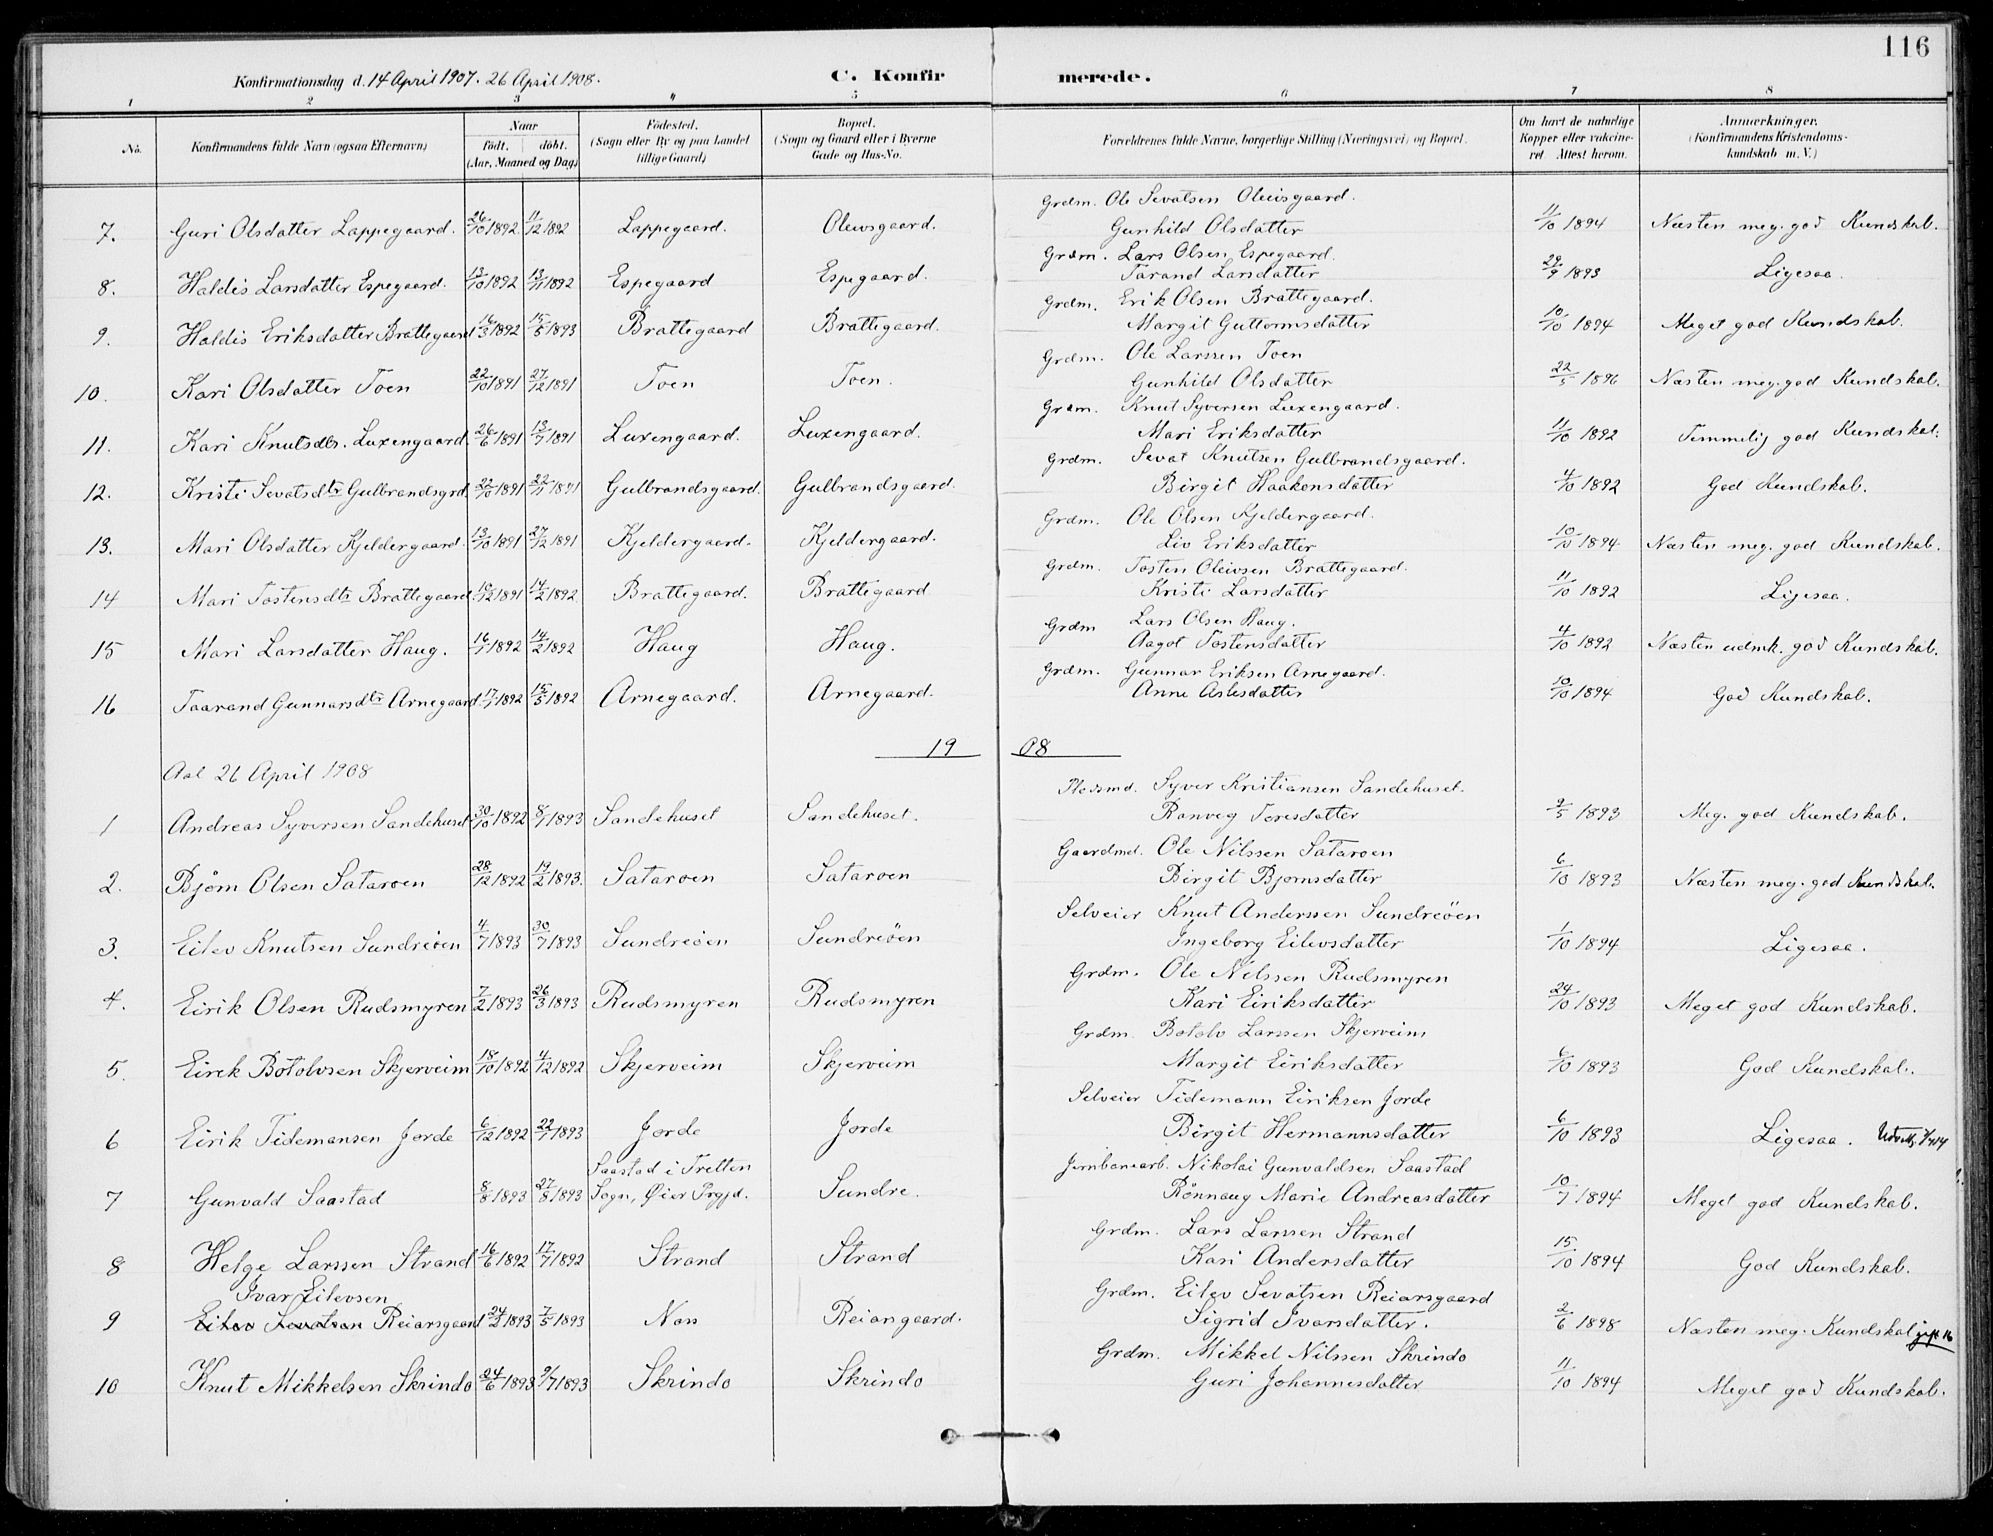 116
Konfirmationsdag d. 14 April 1907. 26 April 1908. C. Konfir merede.
1 2 3 4 5 6 7 8
No. Konfirmandens fulde Navn (ogsaa Efternavn) Naar födt. döbt. (Aar, Maaned og Dag) Födested. (Sogn eller By og paa Landet tillige Gaard) Bopæl. (Sogn og Gaard eller i Byerne Gade og Hus-No. Forældrenes fulde Navne, borgerlige Stilling (Næringsvei) og Bopæl. Om havt de naturlige Kopper eller vakcineret. Attest herom. Anmærkninger. (Konfirmandens Kristendomskundskab m. V.)
Grdm. Ole Sevatsen Oleivsgaard.
7. Guri Olsdatter Lappegaard. 26/10 1892 11/12 1892 Lappegaard. Oleivsgaard. Gunhild Olsdatter 11/10 1894 Næsten meg. god Kundskab.
Grdm. Lars Olsen Espegaard.
8. Haldis Larsdatter Espegaard. 13/10 1892 13/11 1892 Espegaard Espegaard. Tarand Larsdatter 29/9 1893 Ligesaa.
Grdm. Erik Olsen Brattegaard.
9. Haldis Eriksdatter Brattegaard 16/3 1892 15/5 1893 Brattegaard Brattegaard. Margit Guttormsdatter 10/10 1894 Meget god Kundskab.
Grdm. Ole Larssen Toen
10. Kari Olsdatter Toen 22/10 1891 27/12 1891 Toen Toen. Gunhild Olsdatter 22/5 1896 Næsten meg. god Kundskab.
Grdm. Knut Syversen Luxengaard.
11. Kari Knutsdtr. Luxengaard. 26/6 1891 13/7 1891 Luxengaard. Luxengaard. Mari Eriksdatter 11/10 1892 Temmelig god Kundskab.
Grdm. Sevat Knutsen Gulbrandsgaard.
12. Kristi Sevatsdtr Gulbrandsgrd. 22/10 1891 22/11 1891 Gulbrandsgaard. Gulbrandsgaard. Birgit Haakensdatter 4/10 1892 God Kundskab.
Grdm. Ole Olsen Kjeldergaard.
13. Mari Olsdatter Kjeldergaard. 13/10 1891 27/12 1891 Kjeldergaard. Kjeldergaard. Liv Eriksdatter 10/10 1894 Næsten meg. god Kundskab.
Grdm. Tosten Oleivsen Brattegaard.
14 Mari Tostensdtr Brattegaard 16/12 1891 14/2 1892 Brattegaard. Brattegaard Kristi Larsdatter 11/10 1892 Ligesaa.
Grdm Lars Olsen Haug.
15 Mari Larsdatter Haug. 16/1 1892 14/2 1892 Haug Haug. Aagot Tostensdatter 4/10 1892 Næsten udmk. god Kundskab.
Grdm. Gunnar Eriksen Arnegaard.
16 Taarand Gunnarsdtr Arnegaard. 17/1 1892 15/5 1892 Arnegaard. Arnegaard. Anne Aslesdatter 10/10 1894 God Kundskab.
19 08
Aal 26 April 1908
Pladsmd. Syver Kristiansen Sandehuset.
1 Andreas Syversen Sandehuset 30/10 1892 8/1 1893 Sandehuset Sandehuset. Ranveg Toresdatter 9/5 1893 Meg. god Kundskab.
Gaardmd. Ole Nilssen Sataroen
2. Bjørn Olsen Sataroen 28/12 1892 19/2 1893. Sataroen Sataroen Birgit Bjørnsdatter 6/10 1893 Næsten meg. god Kundskab.
Selveier Knut Anderssen Sundreöen
3. Eilev Knutsen Sundreöen 4/7 1893 30/7 1893 Sundreöen Sundreöen Ingeborg Eilevsdatter 1/10 1894 Ligesaa.
Grdm. Ole Nilssen Rudsmyren
4. Eirik Olsen Rudsmyren 7/2 1893 26/3 1893 Rudsmyren Rudsmyren Kari Eiriksdatter 24/10 1893 Meget god Kundskab.
Grdm. Botolv Larssen Skjerveim
5. Eirek Botolvsen Skjerveim 18/10 1892 4/12 1892 Skjerveim Skjerveim Margit Eiriksdatter 6/10 1893 God Kundskab.
Selveier Tidemann Eiriksen Jorde
6 Eirik Tidemansen Jorde 6/12 1892 22/1 1893 Jorde Jorde Birgit Hermannsdatter 6/10 1893 Ligesaa.
Saastad i Tretten Jernbanearb. Nikolai Gunvaldsen Saastad
7 Gunvald Saastad 8/8 1893 27/8 1893 Sogn, Øier Prgjd. Sundre. Rönnaug Marie Andreasdatter 10/7 1894 Meget god Kundskab.
Grdm. Lars Larssen Strand
8 Helge Larssen Strand 16/6 1892 17/7 1892 Strand Strand Kari Andersdatter 15/10 1894 God Kundskab.
Ivar Eilevsen Grdm. Eilev Sevatsen Reiarsgaard
9 Eilev Sevatsen Reiarsgaard 24/2 1893 7/5 1893 Næs Reiarsgaard. Sigrid Ivarsdatter. 2/6 1898 Næsten meg. Kundskab
Grdm. Mikkel Nilssen Skrindo
10 Knut Mikkelsen Skrindo 24/6 1893 9/7 1893 Skrindo Skrindo Guri Johannesdatter 11/10 1894 Meget god Kundskab.